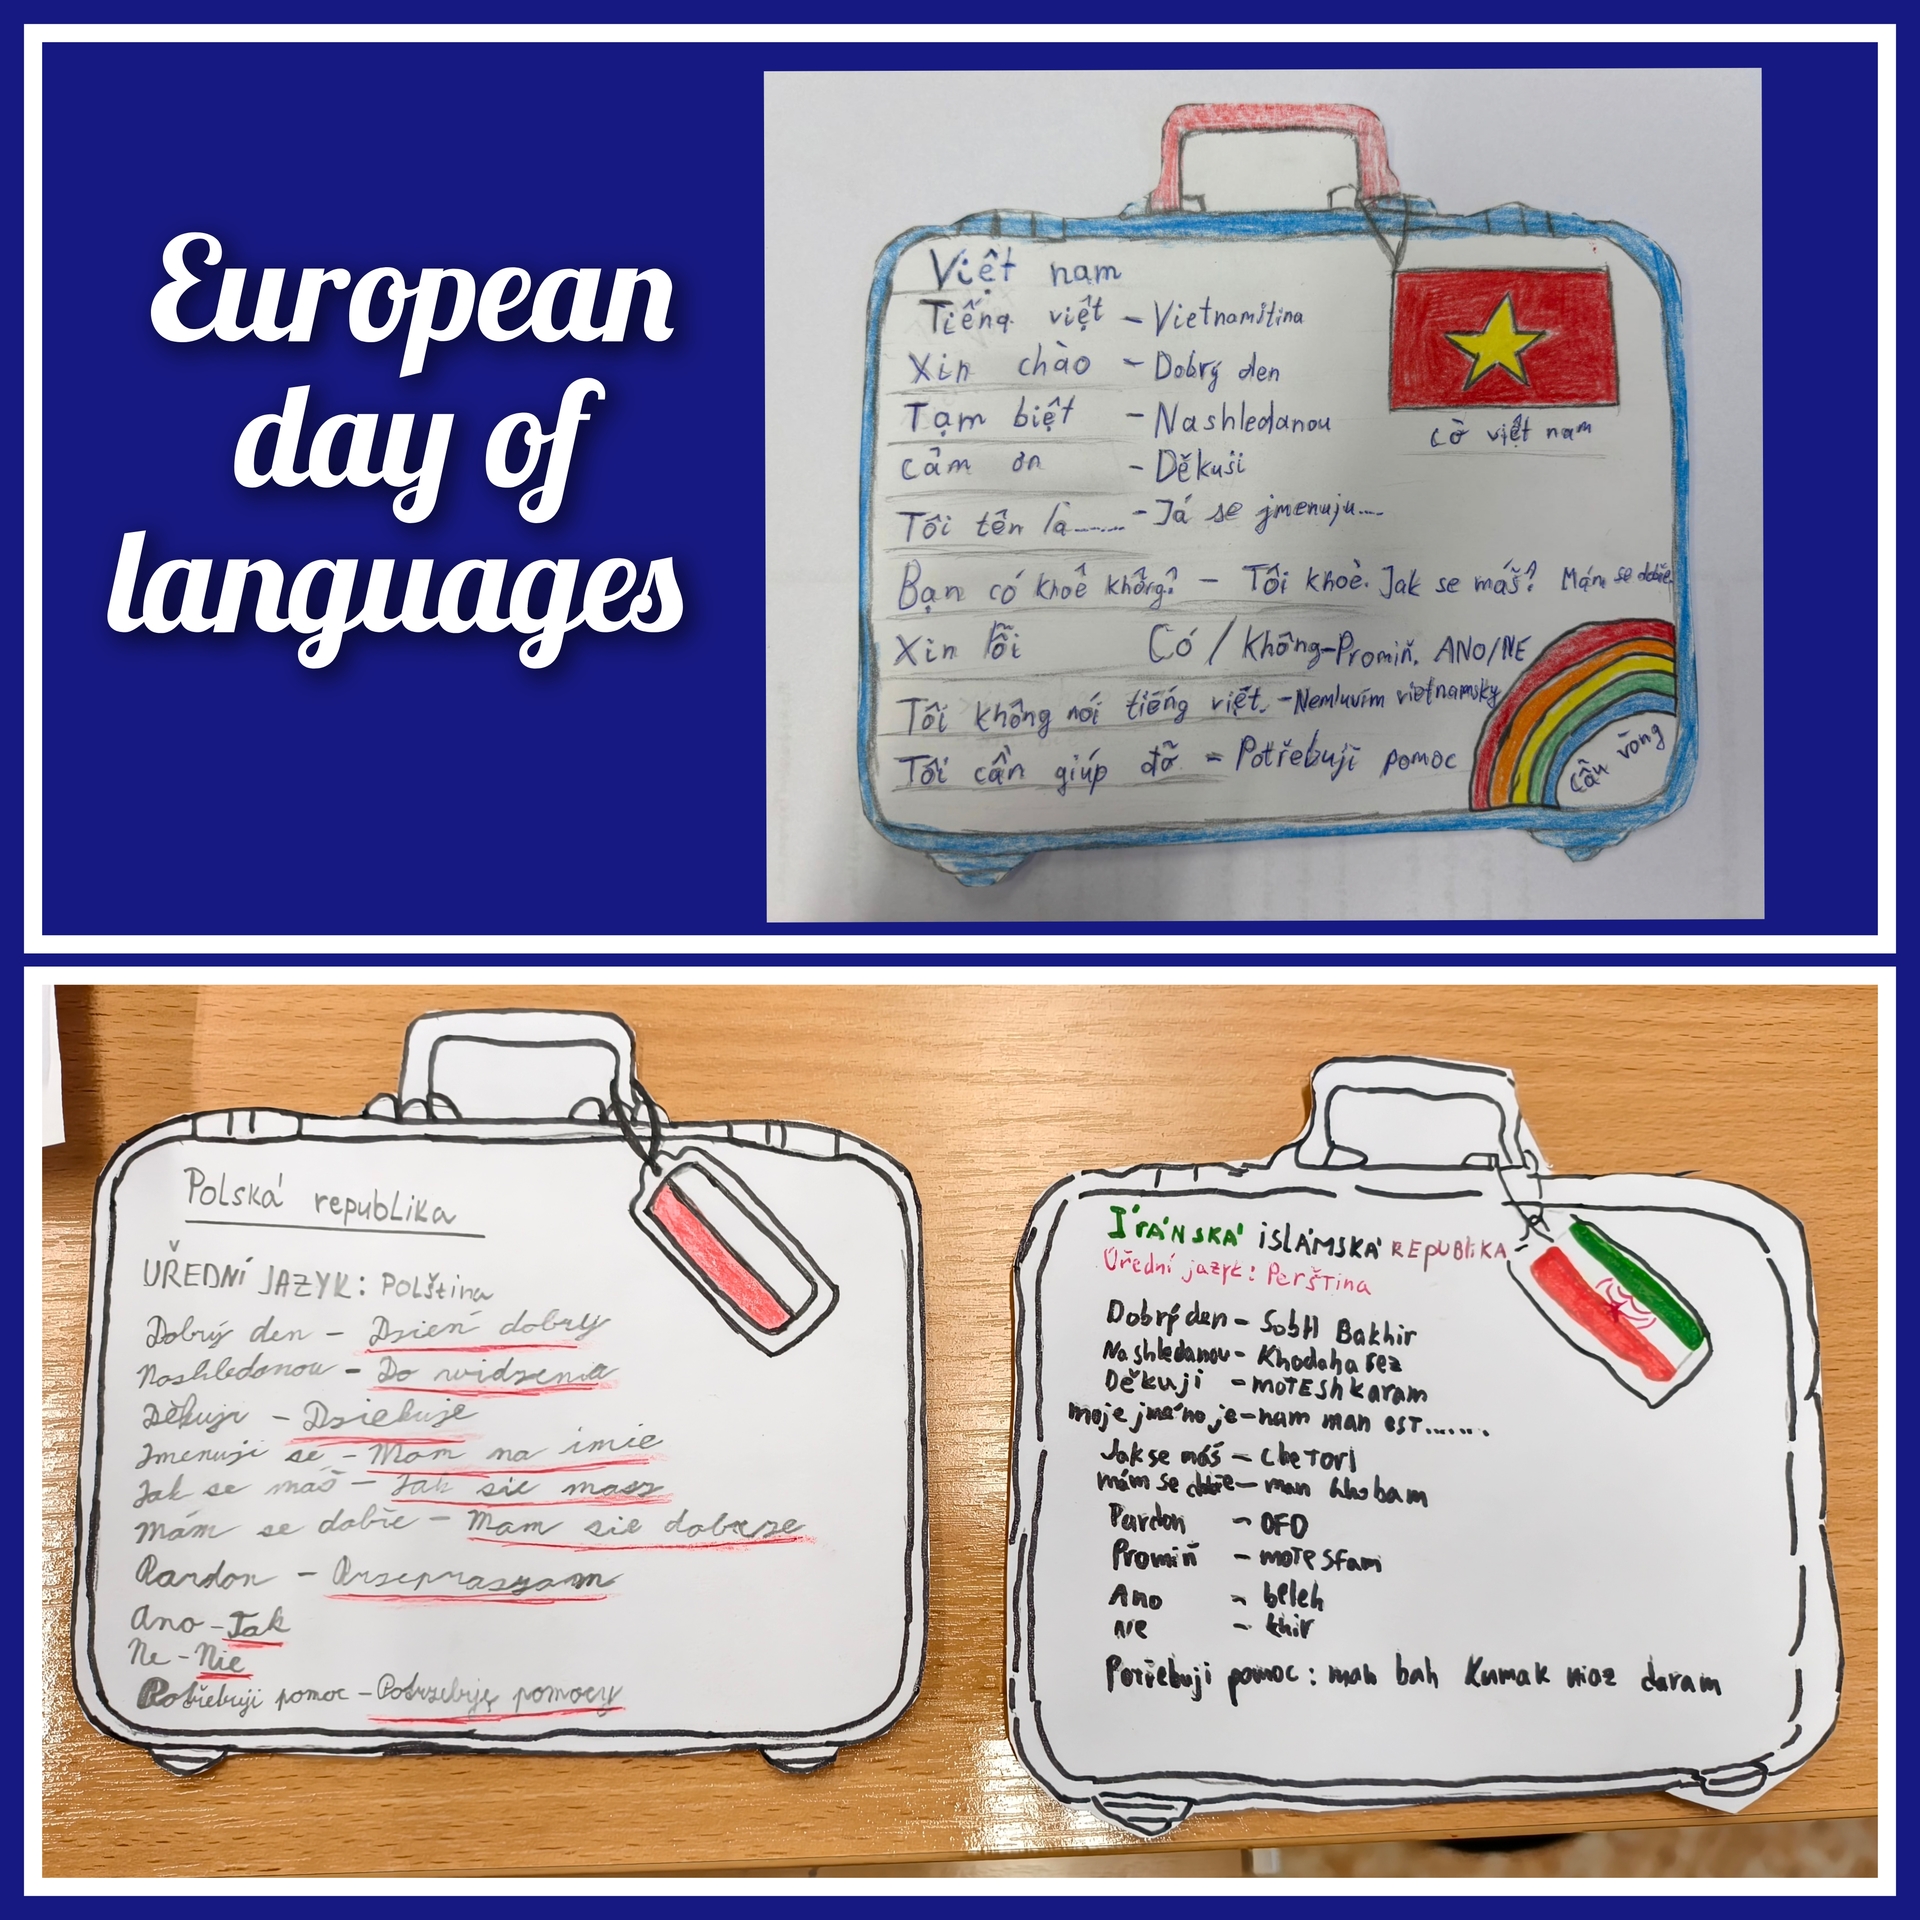 European
day of
languages
Việt nam
Tiếng việt - Vietnamština
Xin chào - Dobrý den
Tạm biệt - Nashledanou
cảm ơn - Děkuši
Tôi tên là...... - Já se jmenuju....
Bạn có khoẻ không? - Tôi khoẻ. Jak se máš? Mám se dobře.
Xin lỗi Có / Không - Promiň. ANO/NE
Tôi không nói tiếng việt. - Nemluvím vietnamsky
Tôi cần giúp đỡ - Potřebuji pomoc
cờ việt nam
cầu vòng
Polská republika
ÚŘEDNÍ JAZYK: POLština
Dobrý den - Dzień dobry
Nashledanou - Do widzenia
Děkuji - Dziekuje
Jmenuji se - Mam na imie
Jak se máš - Jak sie masz
Mám se dobře - Mam sie dobrze
Pardon - Przepraszam
Ano - Tak
Ne - Nie
Potřebuji pomoc - Potrzebuję pomocy
ÍRÁNSKÁ iSLÁMSKÁ REPUBLIKA
Úřední jazyk: Perština
Dobrý den - SobH Bakhir
Nashledanou - Khodahafez
Děkuji - moTEShkaram
moje jméno je - nam man EST.......
Jak se máš - CheTorI
mám se dobře - man khobam
Pardon - OFO
Promiň - moTeSFam
Ano - beleh
Ne - khir
Potřebuji pomoc: man bah Kumak niaz daram